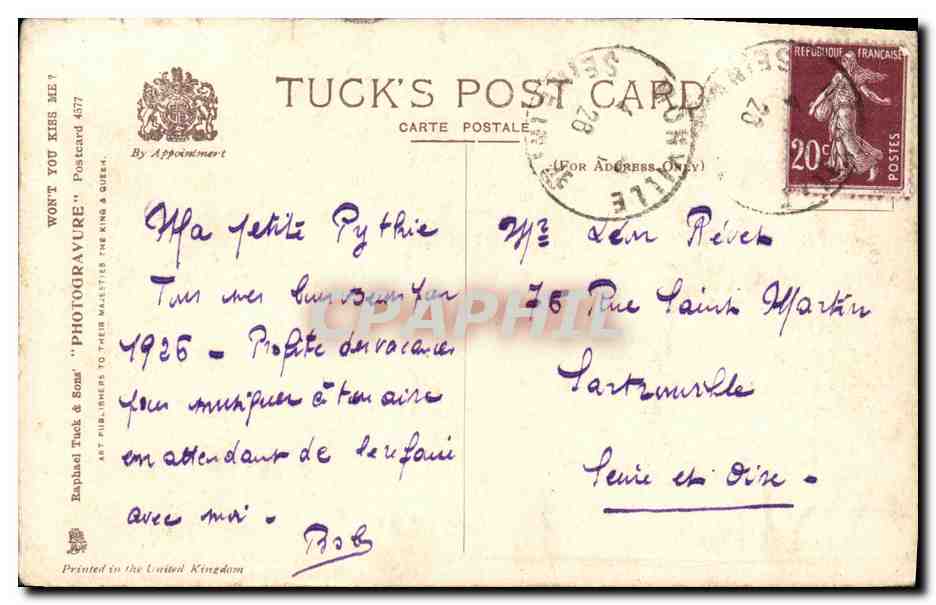 TUCK'S POST CARD
CARTE POSTALE
By Appointment
(FOR ADDRESS ONLY)
REPUBLIQUE FRANÇAISE
20c
POSTES
WON'T YOU KISS ME?
Raphael Tuck & Sons' "PHOTOGRAVURE" Postcard 4577
ART PUBLISHERS TO THEIR MAJESTIES THE KING & QUEEN.
Ma petite Pythie
Tous mes pour
1926 – Profite des vacances
pour musiquer à ton aise
en attendant de le refaire
avec moi –
Bob
Mr Léon Révet
76 Rue Saint Martin
Sartrouville
Seine et Oise –
Printed in the United Kingdom
CPAPHIL